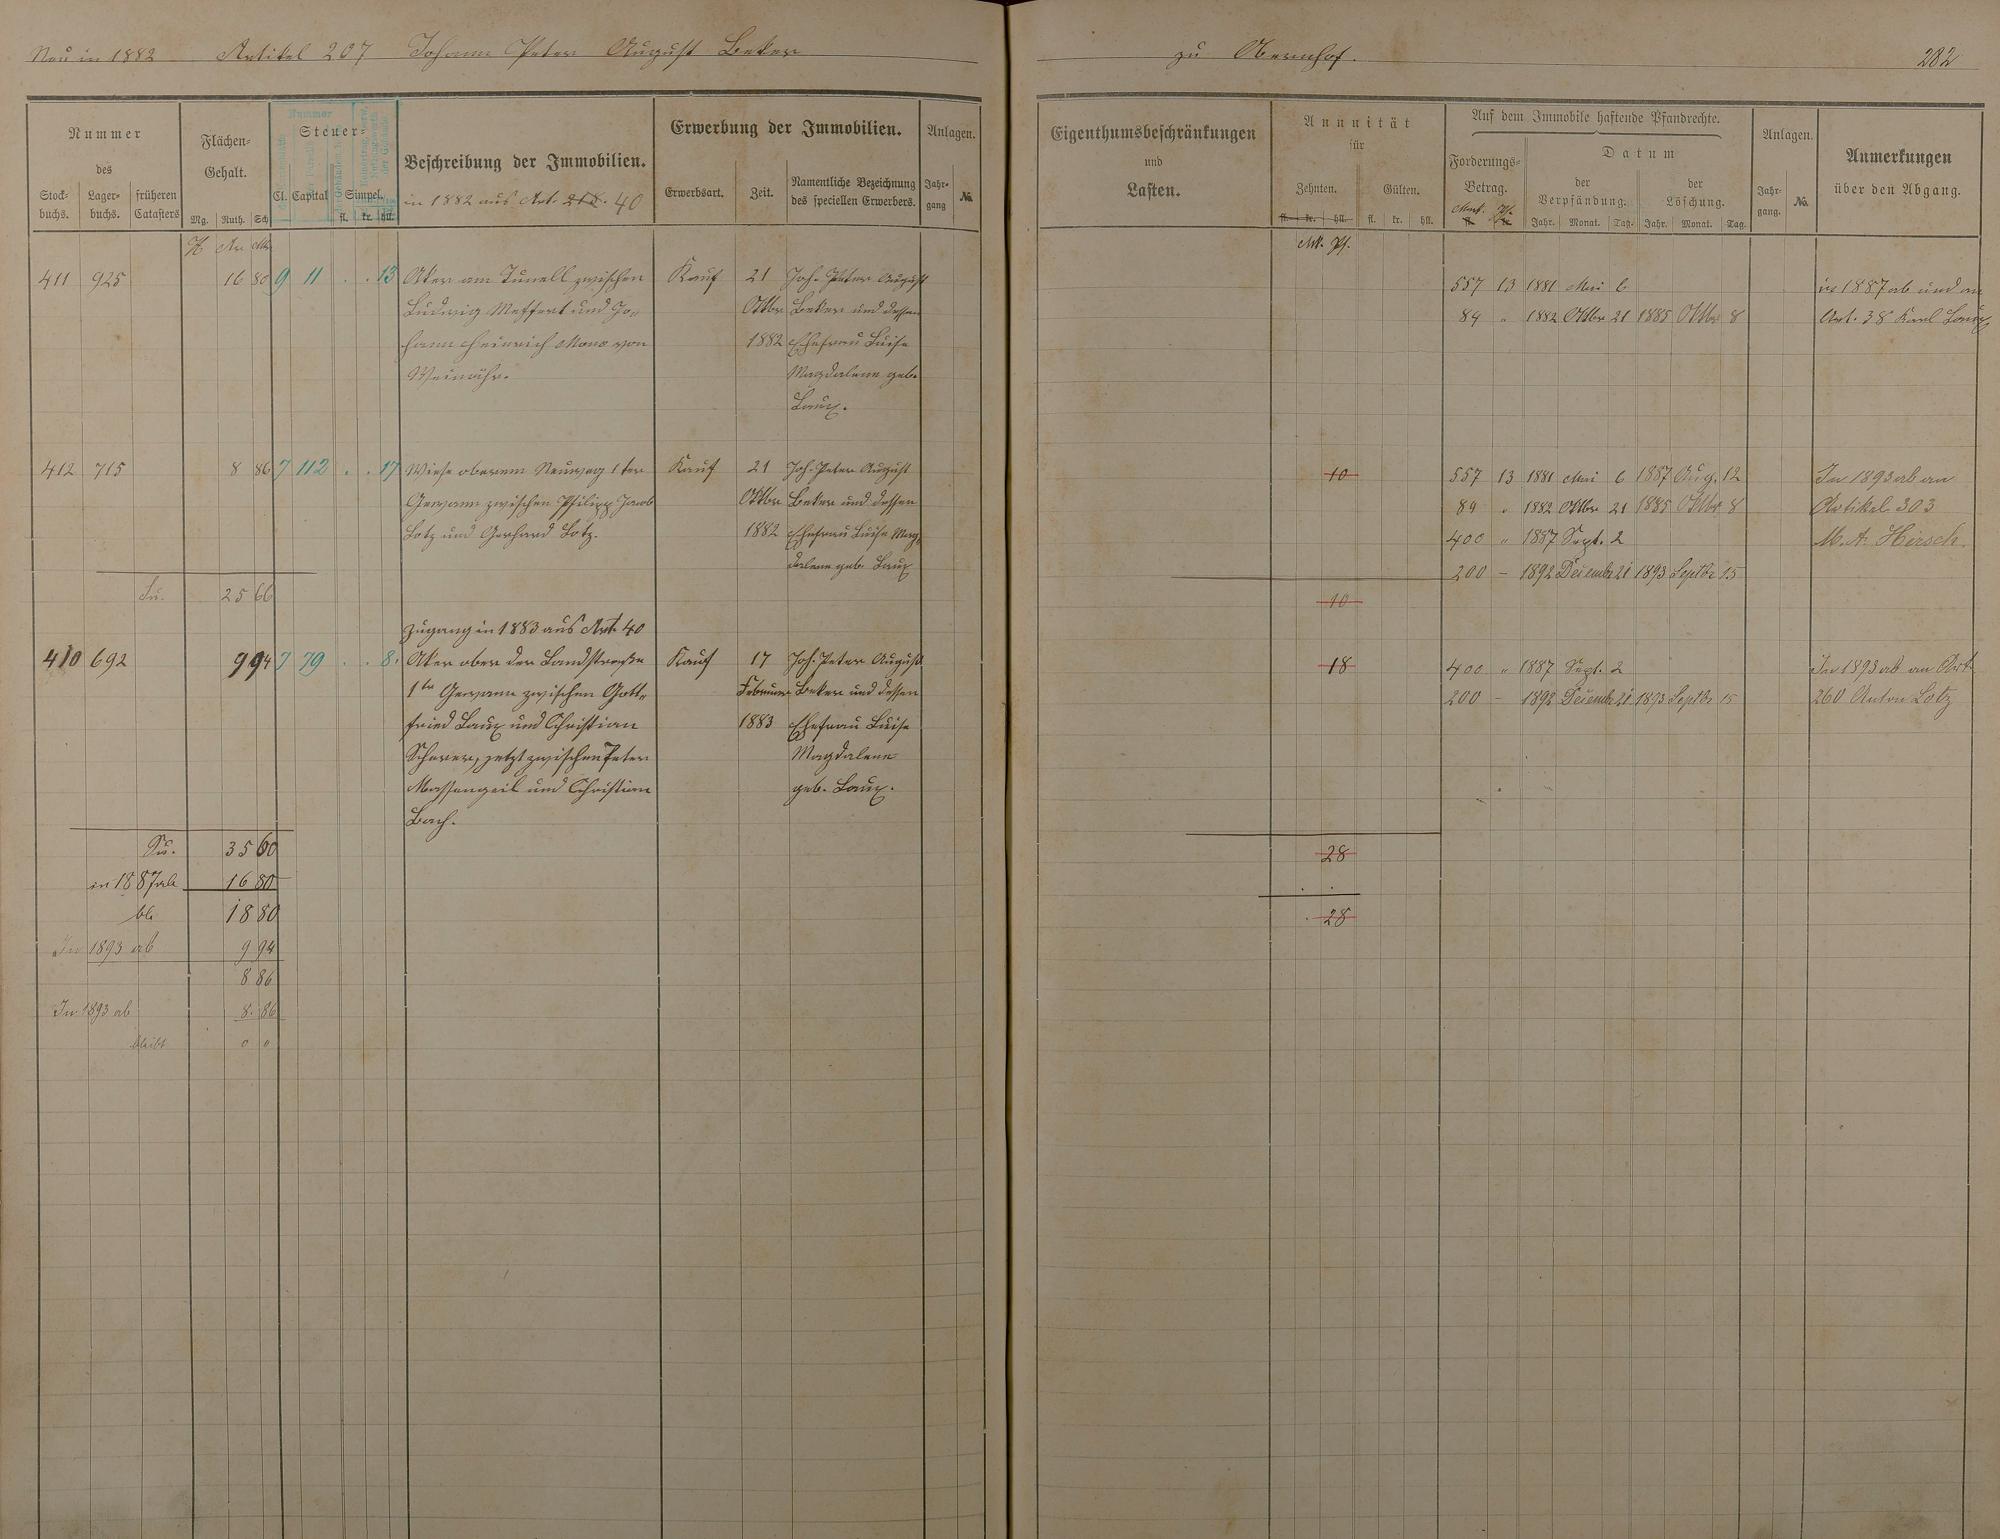 Neu in 1882 Artikel 207 Johann Peter August Beker
zu Obernhof. 282
Nummer
des
Stock-
buchs.
Lager-
buchs.
früheren
Catasters
Flächen-
Gehalt.
Mg. Ruth. Sch
Nummer
Steuer-
Cl. Capital Simpel.
fl. kr. hll.
Beschreibung der Immobilien.
in 1882 aus Art. 218. 40
Erwerbung der Immobilien.
Erwerbsart. Zeit.
Namentliche Bezeichnung
des speciellen Erwerbers.
Anlagen.
Jahr-
gang
No.
Eigenthumsbeschränkungen
und
Lasten.
Annuität
für
Zehnten. Gülten.
fl. kr. hll. fl. kr. hll.
Mk. Pf.
Auf dem Immobile haftende Pfandrechte.
Forderungs-
Betrag.
Mark. Pf.
Datum
der
Verpfändung.
Jahr. Monat. Tag.
der
Löschung.
Jahr. Monat. Tag.
Anlagen.
Jahr-
gang.
No.
Anmerkungen
über den Abgang.
H Ar Mtr
411 925 16 80 9 11 . . 13 Aker am Tunell zwischen Kauf 21 Joh. Peter August 557 13 1881 Mai 6 in 1887 ab und an
Ludwig Meffert und Jo- Oktbr Beker und dessen 84 " 1882 Oktbr 21 1885 Oktbr 8 Art. 38 Karl Laux
hann Heinrich Mono von 1882 Ehefrau Luise
Weinähr. Magdalene geb.
Laux.
412 715 8 86 7 112 . . 17 Wiese oberem Neuweg 1ter Kauf 21 Joh. Peter August 10 557 13 1881 Mai 6 1887 Aug. 12 In 1893 ab an
Gewann zwischen Philipp Jacob Oktbr Beker und dessen 84 " 1882 Oktbr 21 1885 Oktbr 8 Artikel 303
Lotz und Gerhard Lotz. 1882 Ehefrau Luise Mag- 400 " 1887 Sept. 2 M. A. Hirsch.
dalene geb. Laux 200 – 1892 Dezembr 21 1893 Septbr 15
Su. 25 66 10
Zugang in 1883 aus Art. 40
410 692 9 94 7 79 . . 8. Aker ober der Landstraße Kauf 17 Joh. Peter August 18 400 " 1887 Sept. 2 In 1893 ab an Art
1te Gewann zwischen Gott- Februar Beker und dessen 200 – 1892 Dezembr 21 1893 Septbr 15 260 Anton Lotz
fried Laux und Christian 1883 Ehefrau Luise
Scherer, jetzt zwischen Peter Magdalene
Massengeil und Christian geb. Laux.
Bach.
Su. 35 60 28
in 1887 ab 16 80
bl. 18 80 28
In 1893 ab 9 94
8 86
In 1893 ab 8. 86
bleibt 0 0